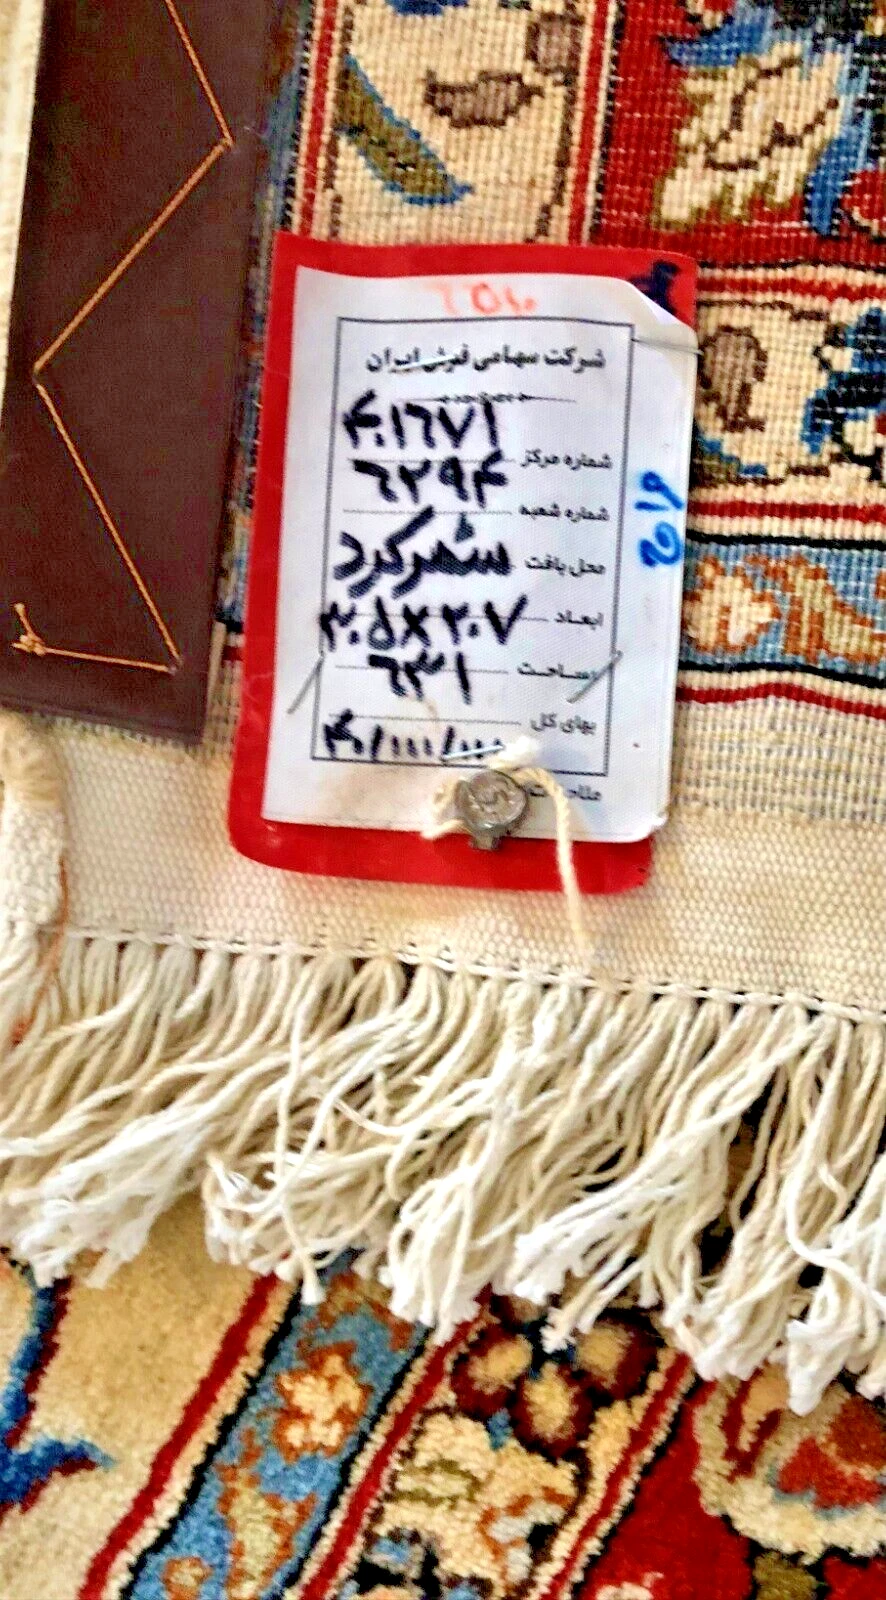 ۶۵۱۰
شرکت سهامی فرش ایران
۴۰۱۶۷۱
شماره مرکز
۶۲۹۴
شماره شعبه
محل بافت شهرکرد
ابعاد ۳۰۵×۲۰۷
مساحت ۶۳۱
بهای کل